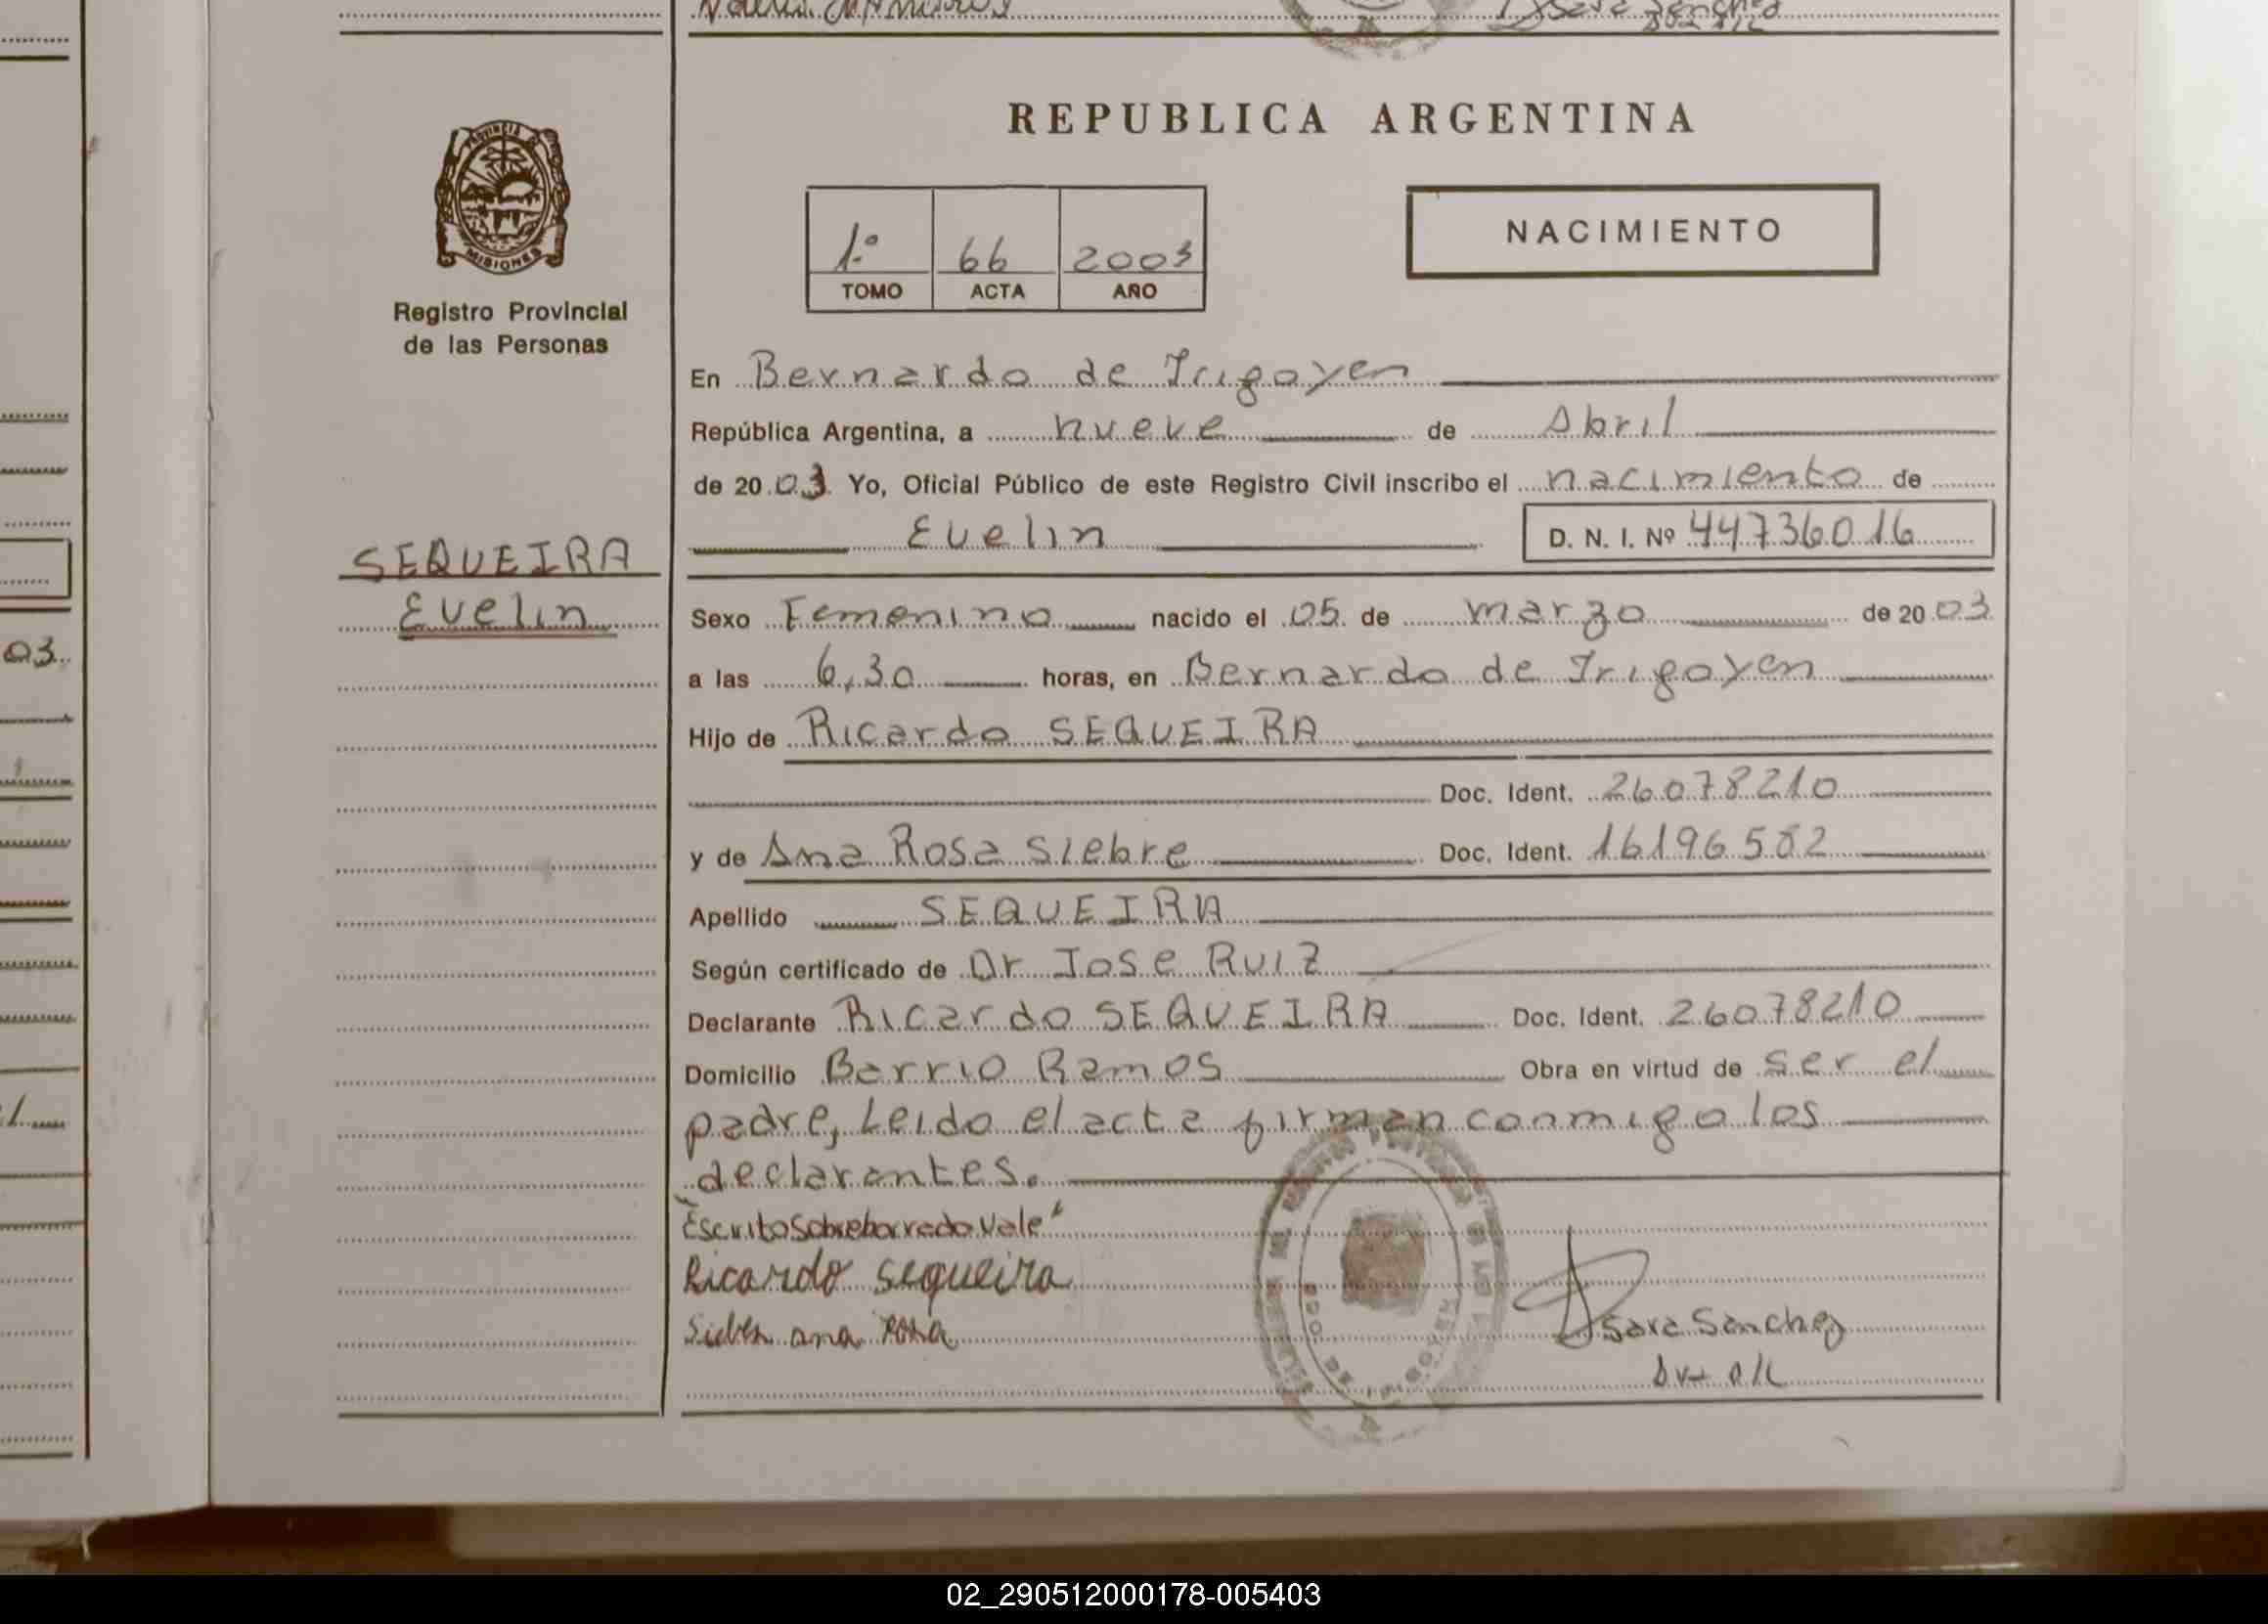 REPUBLICA ARGENTINA
PROVINCIA DE
MISIONES
Registro Provincial
de las Personas
1º 66 2003
TOMO ACTA AÑO
NACIMIENTO
En Bernardo de Irigoyen
República Argentina, a nueve de Abril
de 2003 Yo, Oficial Público de este Registro Civil inscribo el nacimiento de
Evelin D. N. I. Nº 44736016
SEQUEIRA
Evelin
Sexo Femenino nacido el 05 de marzo de 2003
a las 6,30 horas, en Bernardo de Irigoyen
Hijo de Ricardo SEQUEIRA
Doc. Ident. 26078210
y de Ana Rosa Siebre Doc. Ident. 16196582
Apellido SEQUEIRA
Según certificado de Dr Jose Ruiz
Declarante Ricardo SEQUEIRA Doc. Ident. 26078210
Domicilio Barrio Ramos Obra en virtud de ser el
padre, Leido el acta firman conmigo los
declarantes.
"Escrito Sobreborrado Vale"
Ricardo sequeira
ana rosa
Sara Sanchez
03
02_290512000178-005403